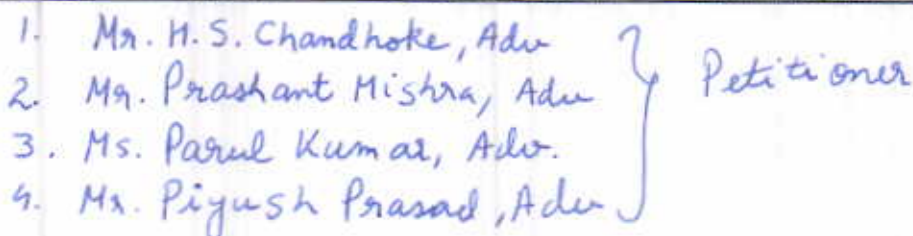 1. Mr. H. S. Chandhoke, Adv
2. Mr. Prashant Mishra, Adv
3. Ms. Parul Kumar, Adv.
4. Mr. Piyush Prasad, Adv
Petitioner